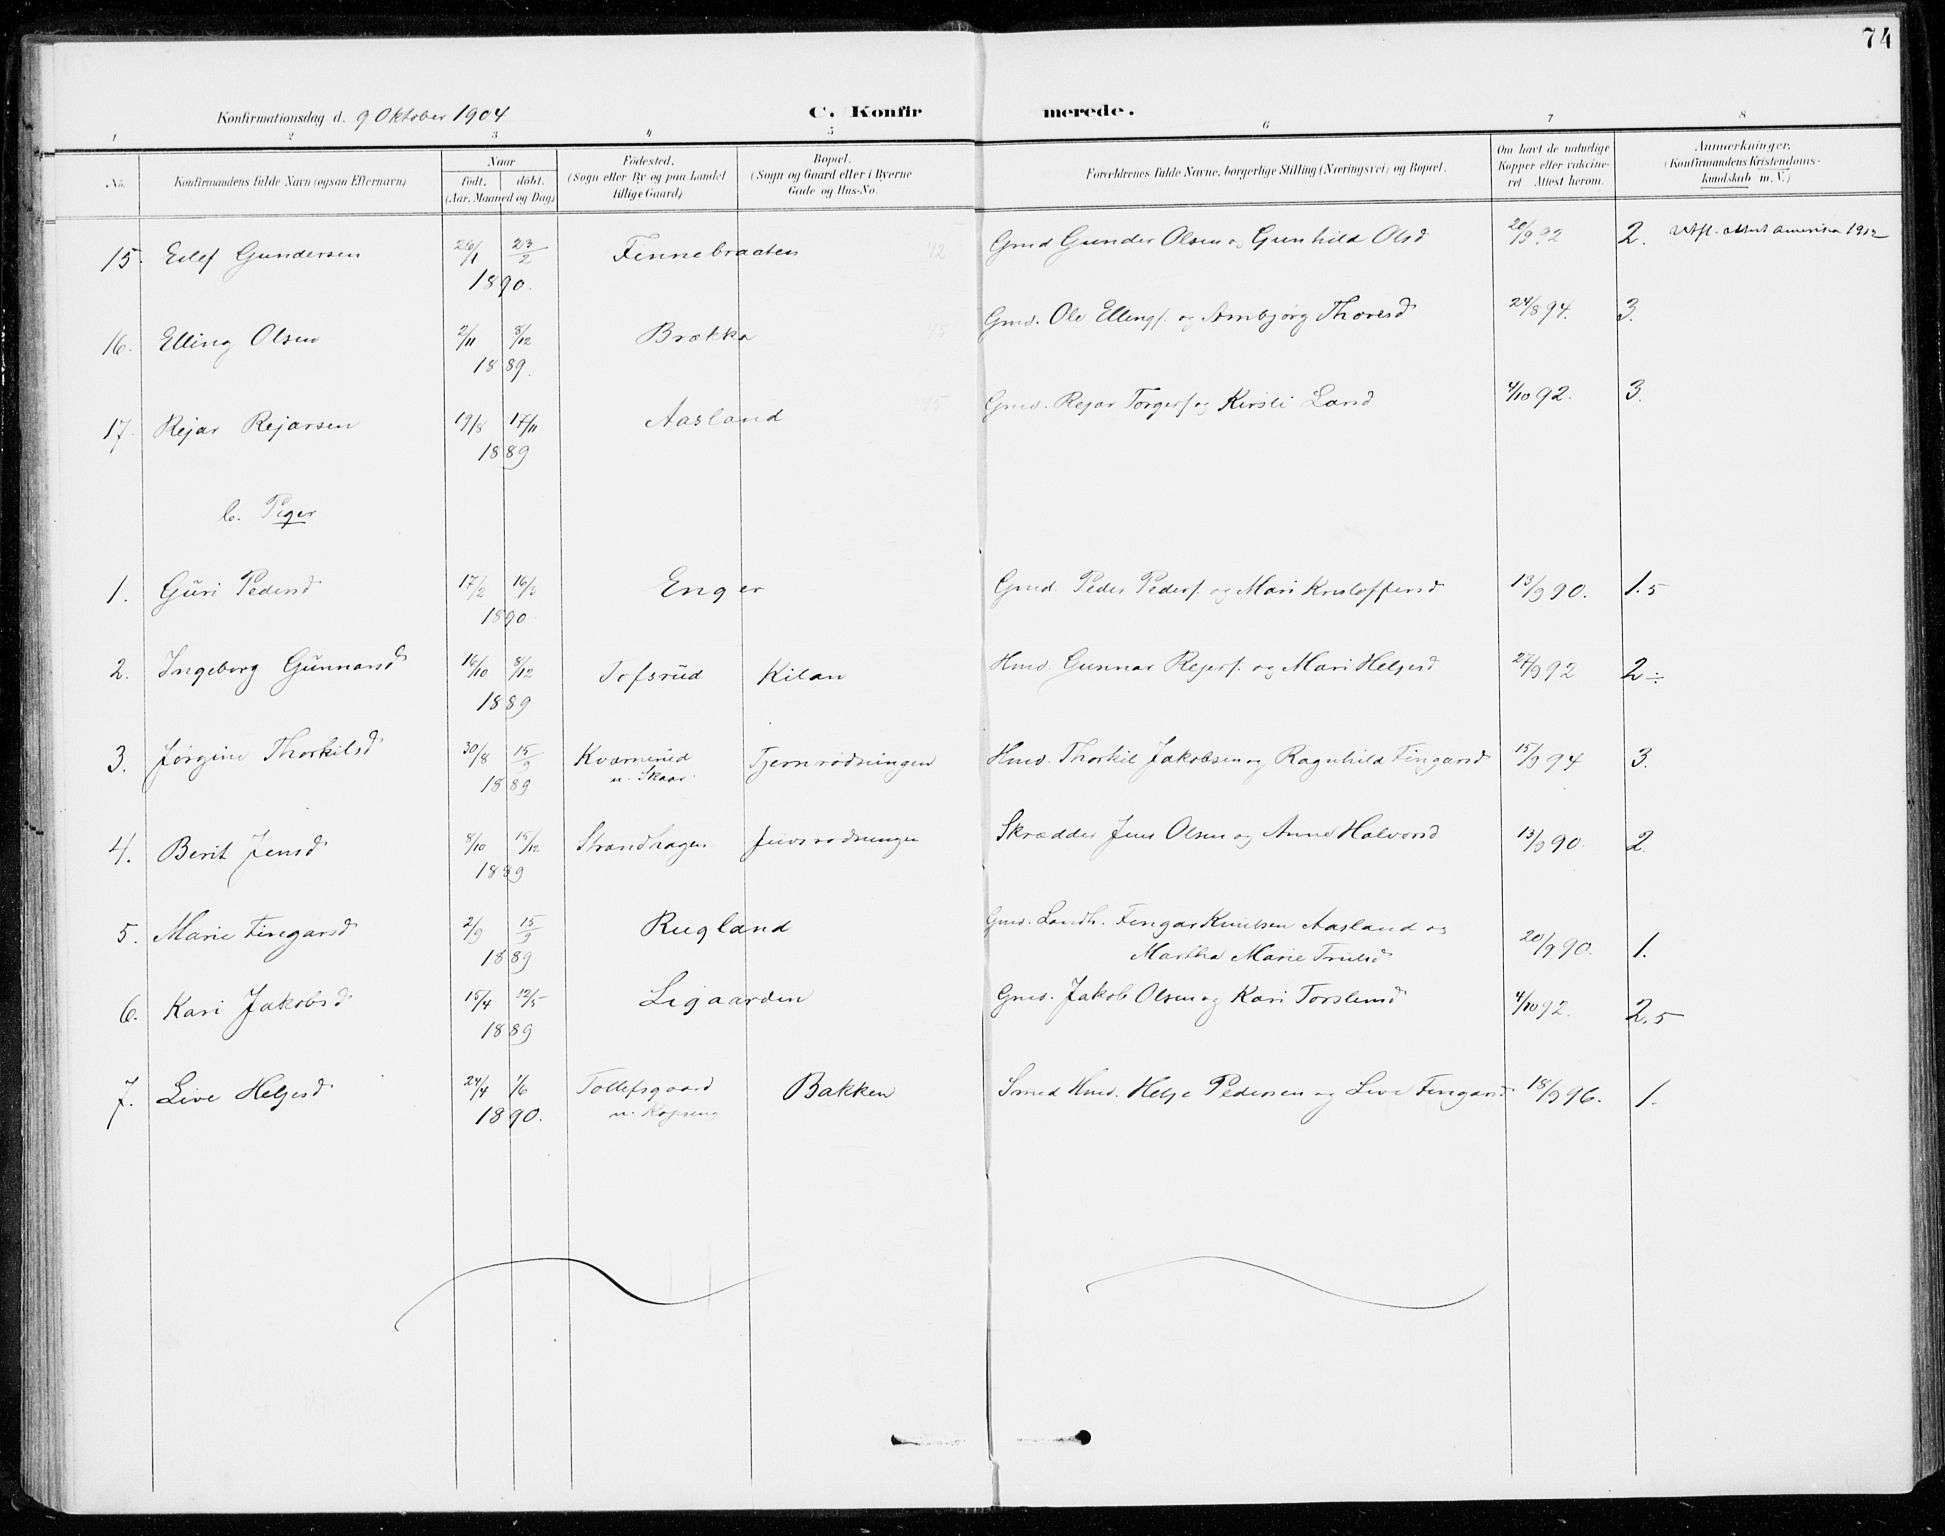 74
Konfirmationsdag d. 9 Oktober 1904
C. Konfirmerede.
1 2 3 4 5 6 7 8
No. Konfirmandens fulde Navn (ogsaa Efternavn) Naar født. døbt. (Aar, Maaned og Dag) Fødested. (Sogn eller By og paa Landet tillige Gaard) Bopæl. (Sogn og Gaard eller i Byerne Gade og Hus-No. Forældrenes fulde Navne, borgerlige Stilling (Næringsvei) og Bopæl. Om havt de naturlige Kopper eller vaksineret. Attest herom. Anmerkninger. (Konfirmandens Kristendomskundskab m. V.)
15. Eilef Gundersen 26/1 23/2 1890. Finnebraaten 42 Gmd Gunder Olsen og Gunhild Olsd 20/9 92 2. Utfl. attest Amerika 1912
16. Elling Olsen 2/11 8/12 1889. Brækka 45 Gmd. Ole Ellings. og Ambjørg Thoresd 24/8 94. 3.
17. Rejar Rejarsen 19/8 17/11 1889 Aasland 45 Gmd. Rejar Torgers og Kirsti Larsd 4/10 92. 3.
b. Piger
1. Guri Pedersd 17/2 16/3 1890. Enger Gmd. Peder Peders. og Mari Kristoffersd 13/9 90. 1.5
2. Ingeborg Gunnarsd 16/10 8/12 1889 Tofsrud Kilan Hmd. Gunnar Rejers. og Mari Helgesd 27/9 92 2 ÷
3. Jørgine Thorkilsd 30/8 15/9 1889 Kværnrud u. Skaar. Tjernrødningen Hmd. Thorkil Jakobsen og Ragnhild Fingarsd 15/9 94 3.
4. Berit Jensd 8/10 15/12 1889 Strandhagen Juvsrødningen Skrædder Jens Olsen og Anne Halvorsd 13/9 90. 2.
5. Marie Fingarsd 2/9 15/9 1889 Rugland Gmd. Landh. Fingar Knudsen Aasland og
Martha Marie Trulsd 20/9 90. 1.
6. Kari Jakobsd 15/4 19/5 1889 Ligaarden Gmd. Jakob Olsen og Kari Torsteinsd 4/10 92. 2.5
7. Live Helgesd 24/4 1/6 1890. Tollefsgaard u. Kopseng Bakken Smed Hmd. Helge Pedersen og Live Fingarsd 18/9 96. 1.